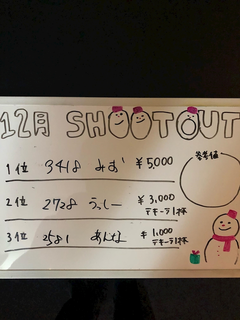 12月 SHOOTOUT
参考値
1位 3418 みお ¥5,000
2位 2728 うっしー ¥3,000
テキーラ1杯
3位 2581 あんな ¥1,000
テキーラ1杯